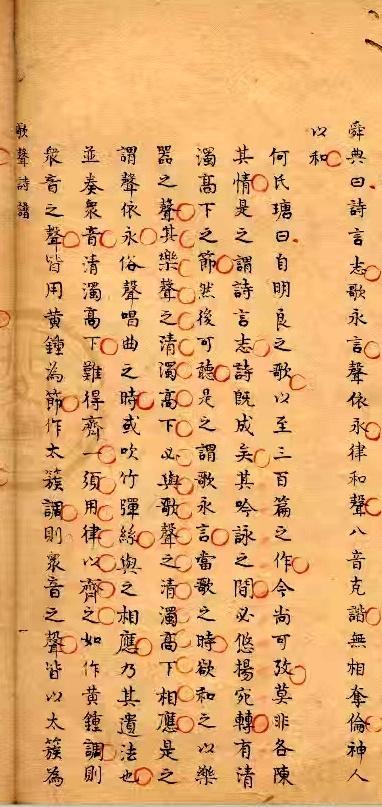 舜典曰詩言志歌永言聲依永律和聲八音克諧無相奪倫神人
以和
何氏瑭曰自明良之歌以至三百篇之作今尚可攷莫非各陳
其情是之謂詩言志詩既成矣其吟詠之間必悠揚宛轉有清
濁高下之節然後可聽是之謂歌永言當歌之時欲和之以樂
器之聲其樂聲之清濁高下必與歌聲之清濁高下相應是之
謂聲依永俗聲唱曲之時或吹竹彈絲與之相應乃其遺法也
並奏衆音清濁高下難得齊一須用律以齊之如作黄鍾調則
衆音之聲皆用黄鍾為節作太簇調則衆音之聲皆以太簇為
歌聲詩譜
一